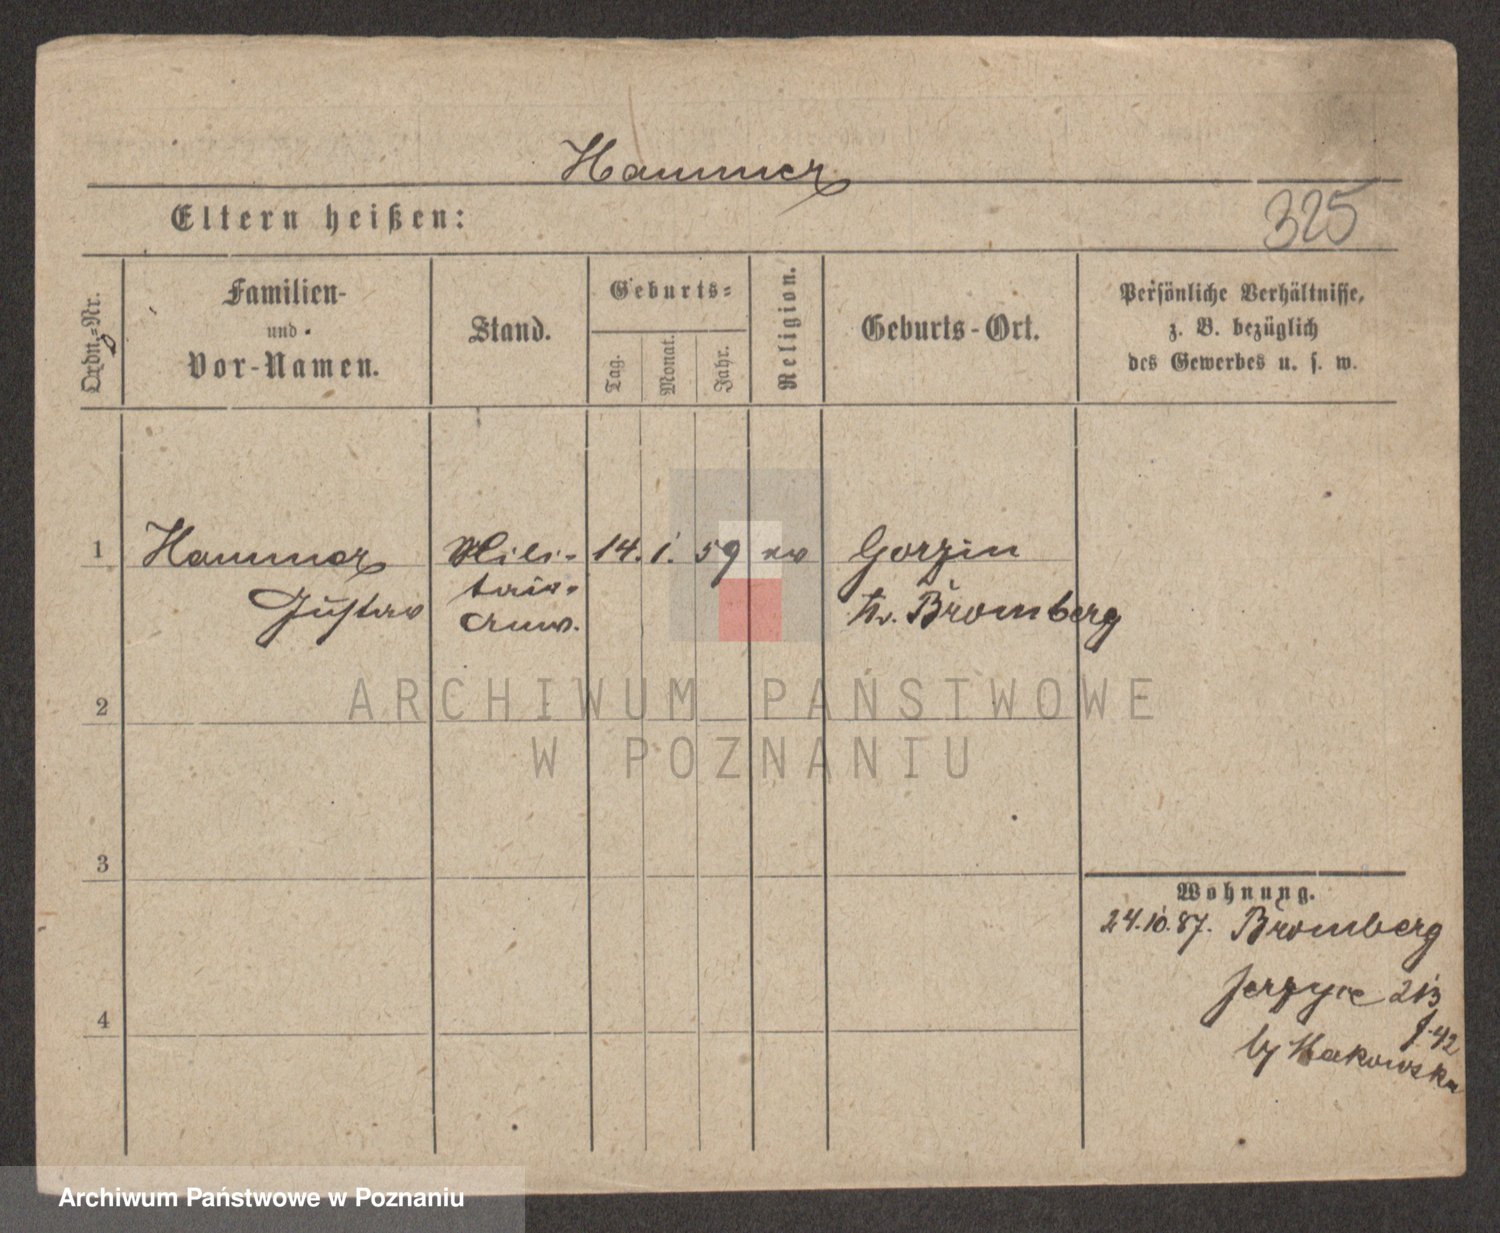 Hammer
Eltern heißen:
325
Ordn.-Nr.
Familien-
und
Vor-Namen.
Stand.
Geburts-
Tag.
Monat.
Jahr.
Religion.
Geburts-Ort.
Persönliche Verhältnisse,
z. B. bezüglich
des Gewerbes u. s. w.
1 Hammer Mili- 14. 1. 59 ev Gorzin
Gustav tair- Kr. Bromberg
Anw.
2
3
4
Wohnung.
24.10.87. Bromberg
Jerzyce
42
by Makowska
ARCHIWUM PAŃSTWOWE
W POZNANIU
Archiwum Państwowe w Poznaniu